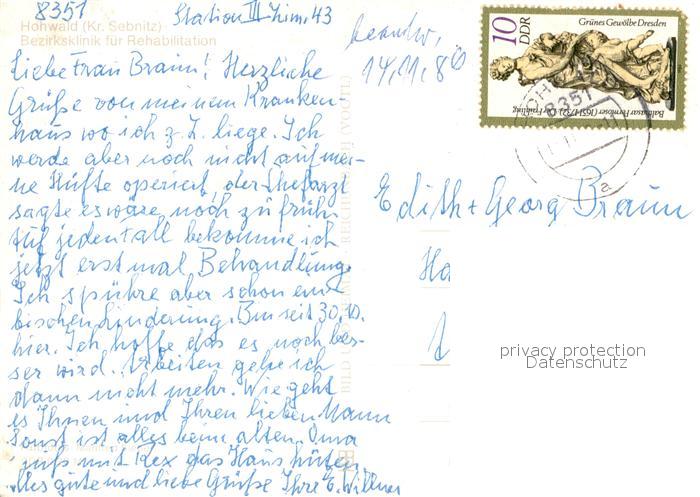 8351 Station III Zim. 43
Hohwald (Kr. Sebnitz)
Bezirksklinik für Rehabilitation
beantw.
14.11.86
Liebe Frau Braun! Herzliche
Grüße von meinem Kranken-
haus wo ich z. Z. liege. Ich
werde aber noch nicht auf mei-
ne Hüfte operiert, der Chefarzt
sagte es wäre noch zu früh.
Auf jeden Fall bekomme ich
jetzt erst mal Behandlung.
Ich spühre aber schon ein
bischen Linderung. Bin seit 30.10.
hier. Ich hoffe das es noch bes-
ser wird. Arbeiten gehe ich
dann nicht mehr. Wie geht
es Ihnen und Ihren lieben Mann
Sonst ist alles beim alten. Oma
muß mit Rex das Haus hüten.
Alles gute und liebe Grüße Ihre E. Willner
10 DDR
Grünes Gewölbe Dresden
Balthasar Permoser (1651-1732) Der Frühling
8351
a
Edith + Georg Braun
Ha
privacy protection
Datenschutz